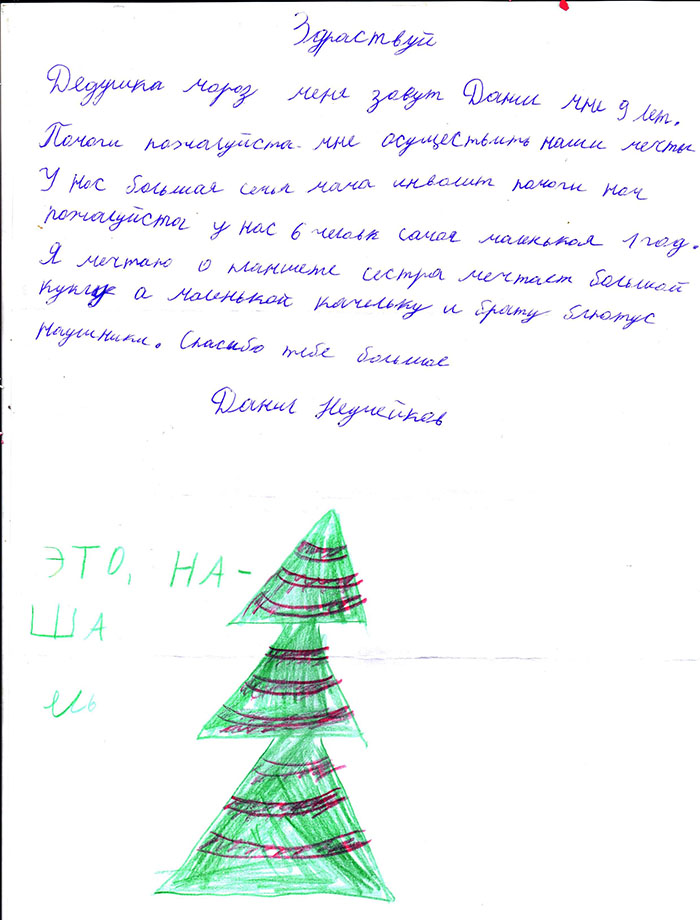 Здраствуй
Дедушка мороз меня зовут Данил мне 9 лет.
Помоги пожалуйста мне осуществить наши мечты
У нас большая семья мама инволит помоги нам
пожалуйста у нас 6 человк самой маинькой 1 год.
Я мечтаю о планшете сестра мечтает большой
кукле а маленькой качельку и брату блютус
наушники. Спасибо тебе большое
Данил
ЭТО, НА-
ША